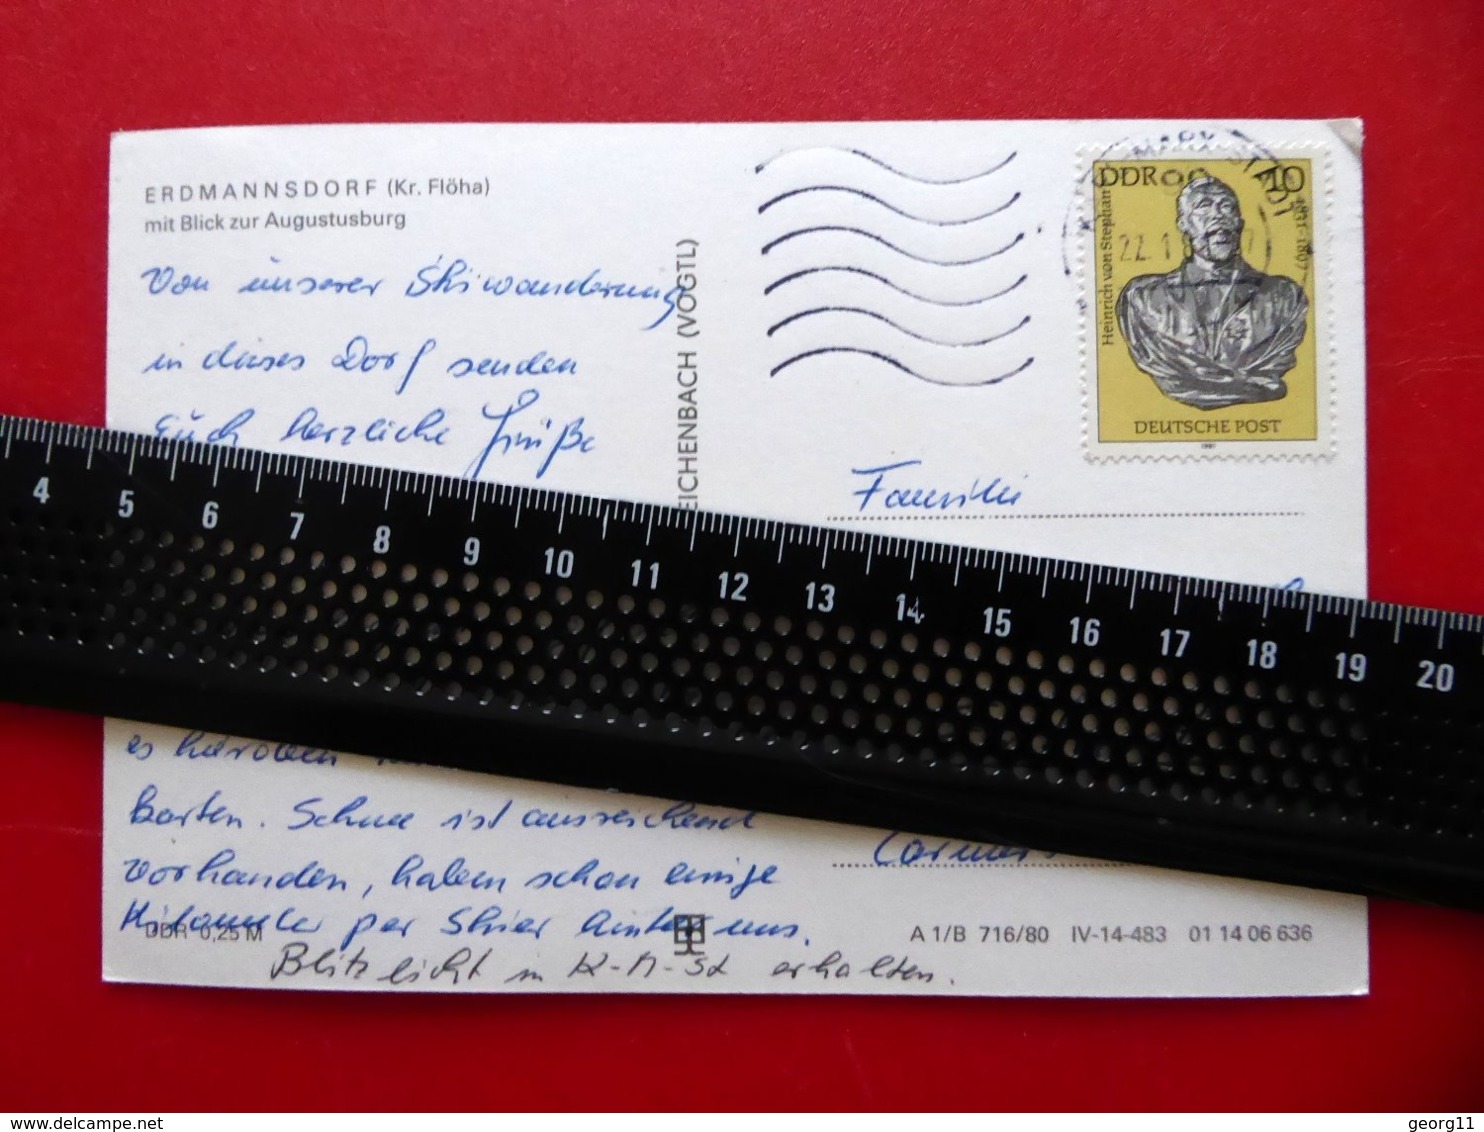 ERDMANNSDORF (Kr. Flöha)
mit Blick zur Augustusburg
Von unserer Skiwanderung
in dieses Dorf senden
Euch herzliche Grüße
es haroben
barten. Schnee ist ausreichend
vorhanden, haben schon einige
Kilometer per Skier hinter uns.
DDR 0,25 M
Blitzlicht in K-M-St erhalten.
EICHENBACH (VOGTL)
MARX STADT
22. 1
DDR 10
Heinrich von Stephan
1831-1897
DEUTSCHE POST
1981
Familie
A 1/B 716/80 IV-14-483 01 14 06 636
4 5 6 7 8 9 10 11 12 13 14 15 16 17 18 19 20
delcampe.net
georg11